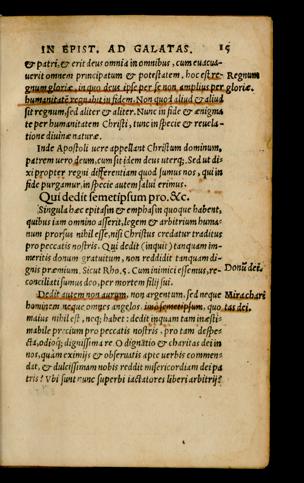 IN EPIST. AD GALATAS. 15
& patri, & erit deus omnia in omnibus, cum euacua-
uerit omnem principatum & potestatem, hoc est re- Regnum
gnum gloriæ, in quo deus ipse per se non amplius per gloriæ.
humanitatē regnabit in fidem. Non quod aliud & aliud
sit regnum, sed aliter & aliter. Nunc in fide & ænigma
te per humanitatem Christi, tunc in specie & reuela-
tione diuinæ naturæ.
Inde Apostoli uere appellant Christum dominum,
patrem uero deum, cum sit idem deus uterq;. Sed ut di-
xi propter regni differentiam quod sumus nos, qui in
fide purgamur, in specie autem salui erimus.
Qui dedit semetipsum pro. &c.
Singula hæc epitasin & emphasin quoque habent,
quibus iam omnino asserit, legem & arbitrium huma-
num prorsus nihil esse, nisi Christus credatur traditus
pro peccatis nostris. Qui dedit (inquit) tanquam im-
meritis donum gratuitum, non reddidit tanquam di-
gnis præmium. Sicut Rho. 5. Cum inimici essemus, re- Donū dei.
conciliati sumus deo, per mortem filij sui.
Dedit autem non aurum, non argentum, sed neque Mira chari
hominem neque omnes angelos. imo semetipsum, quo tas dei.
maius nihil est, neq; habet: dedit inquam tam inæsti-
mabile precium pro peccatis nostris, pro tam despe-
cta, odioq; dignissima re. O dignatio & charitas dei in
nos, quàm eximijs & obseruatis apte uerbis commen-
dat, & dulcissimam nobis reddit misericordiam dei pa
tris? Vbi sunt nunc superbi iactatores liberi arbitrij?